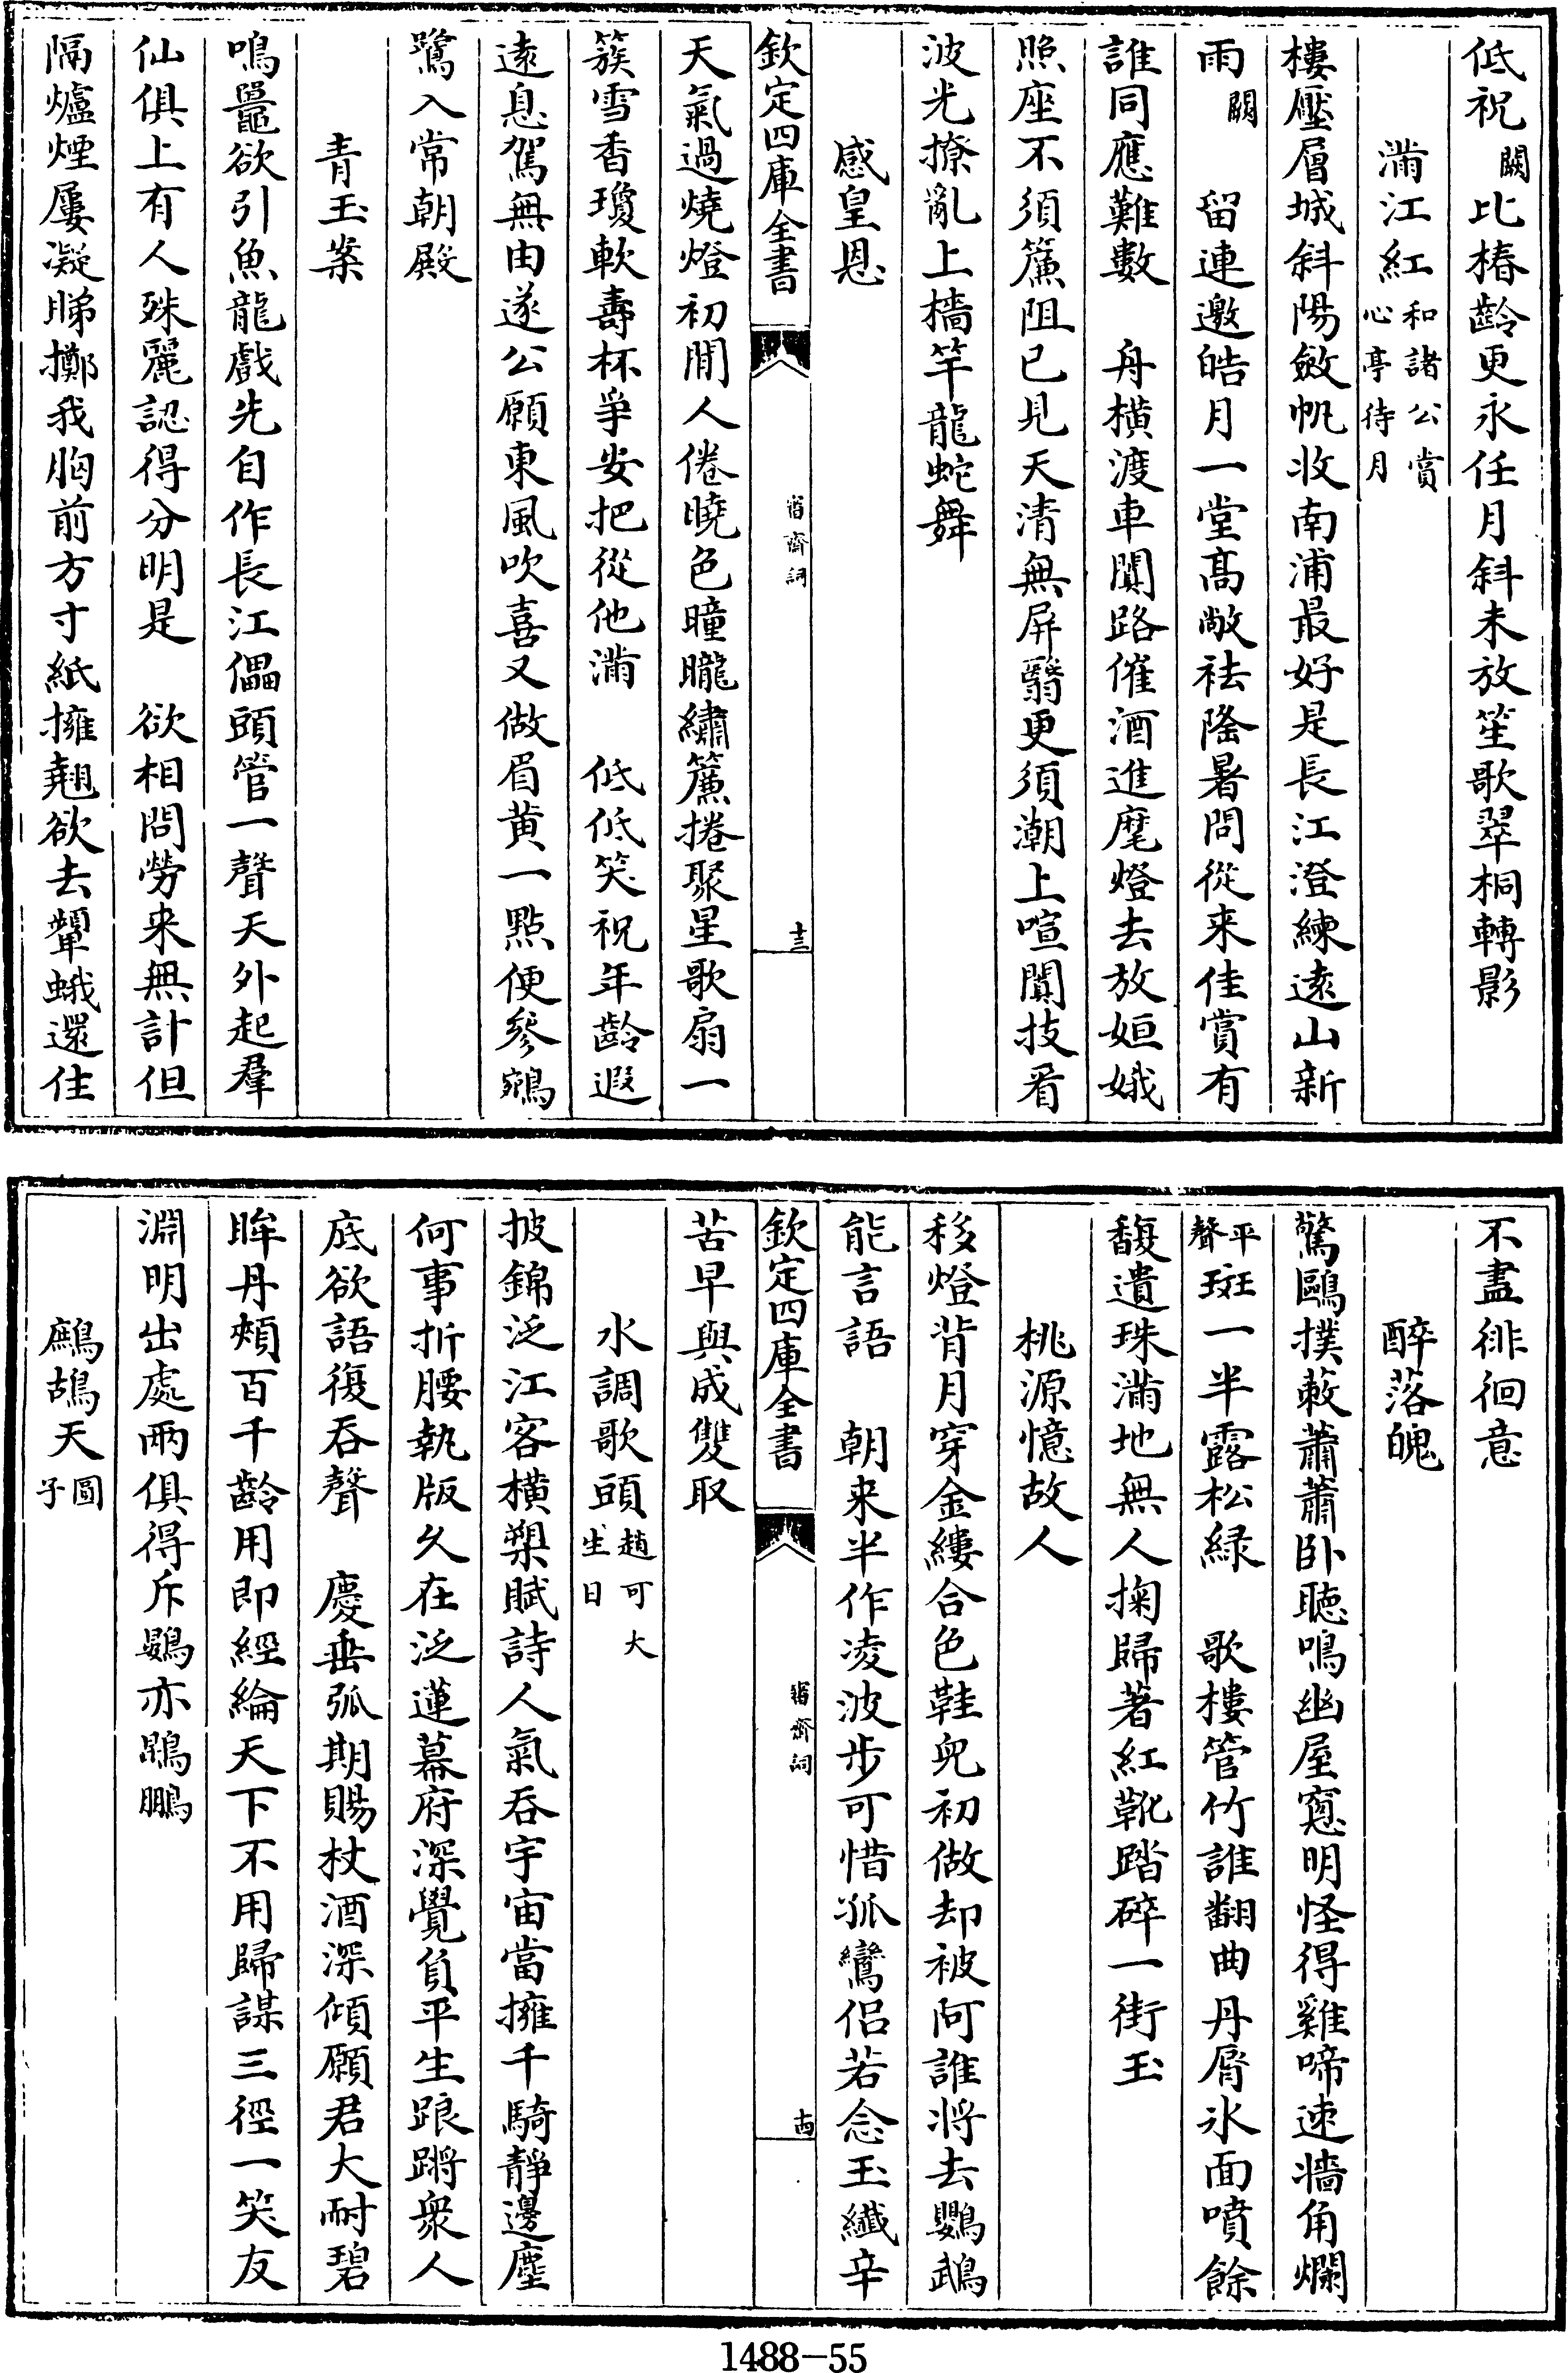 低祝闕比椿齡更永任月斜未放笙歌翠桐轉影
滿江紅和諸公賞心亭待月
樓壓層城斜陽斂帆收南浦最好是長江澄練遠山新
雨闕　留連邀皓月一堂高敞祛隆暑問從来佳賞有
誰同應難數　舟橫渡車闐路催酒進麾燈去放姮娥
照座不須簾阻已見天清無屏翳更須潮上喧闐技看
波光撩亂上檣竿龍蛇舞
感皇恩
欽定四庫全書
㳺齋詞
十三
天氣過燒燈初閒人倦曉色曈曨繡簾捲聚星歌扇一
簇雪香瓊軟壽杯爭安把從他滿　低低笑祝年齡遐
遠息駕無由遂公願東風吹喜又做眉黃一點便參鵷
鷺入常朝殿
青玉案
鳴鼉欲引魚龍戲先自作長江儡頭管一聲天外起羣
仙俱上有人殊麗認得分明是　欲相問勞来無計但
隔爐煙屢凝睇擲我胸前方寸紙擁翹欲去顰蛾還住
不盡徘徊意
醉落魄
驚鷗撲蔌蕭蕭卧聴鳴幽屋窓明怪得雞啼速墻角爛
平聲斑一半露松緑　歌樓管竹誰翻曲丹脣氷面噴餘
馥遺珠滿地無人掬歸著紅靴踏碎一街玉
桃源憶故人
移燈背月穿金縷合色鞋兒初做却被阿誰將去鸚鵡
能言語　朝来半作凌波步可惜孤鸞侶若念玉纖辛
欽定四庫全書
齋詞
十四
苦早與成雙取
水調歌頭趙可大生日
披錦泛江客橫槊賦詩人氣吞宇宙當擁千騎靜邊塵
何事折腰執版久在泛蓮幕府深覺負平生踉蹡衆人
底欲語復吞聲　慶垂弧期賜杖酒深傾願君大耐碧
眸丹頰百千齡用即經綸天下不用歸謀三徑一笑友
淵明出處兩俱得斥鷃亦鵾鵬
鷓鴣天圓子
1488-55